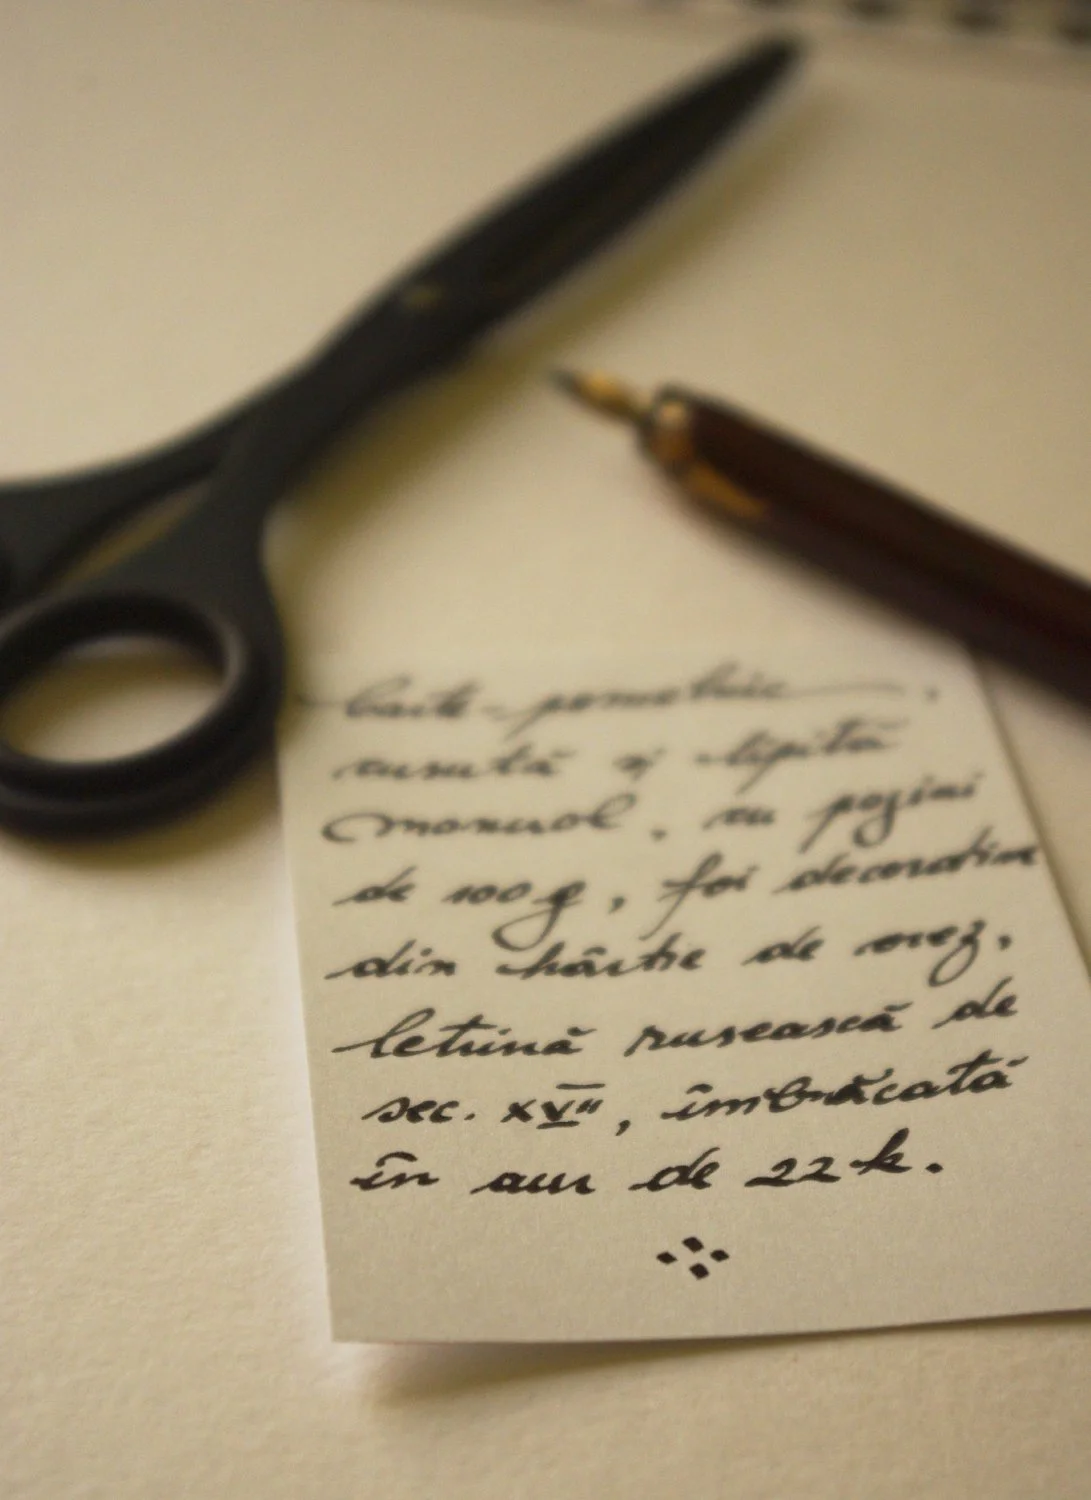 carte-pomelnic,
cusută și lipită
manual, cu pagini
de 100 g, foi decorative
din hârtie de orez,
letrină rusească de
sec. XVII, îmbrăcată
în aur de 22 k.